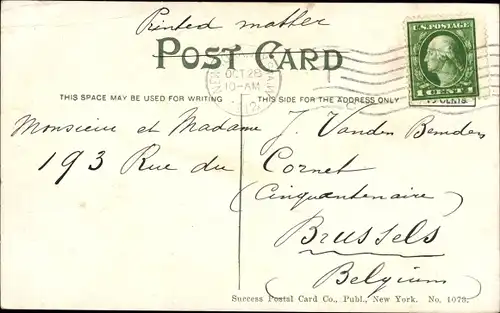 Printed matter
POST CARD
U.S. POSTAGE
1 CENT
NEW
OCT 28
10-AM
12
THIS SPACE MAY BE USED FOR WRITING
THIS SIDE FOR THE ADDRESS ONLY
Monsieur et Madame J. Vanden Bemden
193 Rue du Cornet
(Cinquantenaire)
Brussels
(Belgium)
Success Postal Card Co., Publ., New York. No. 1073.